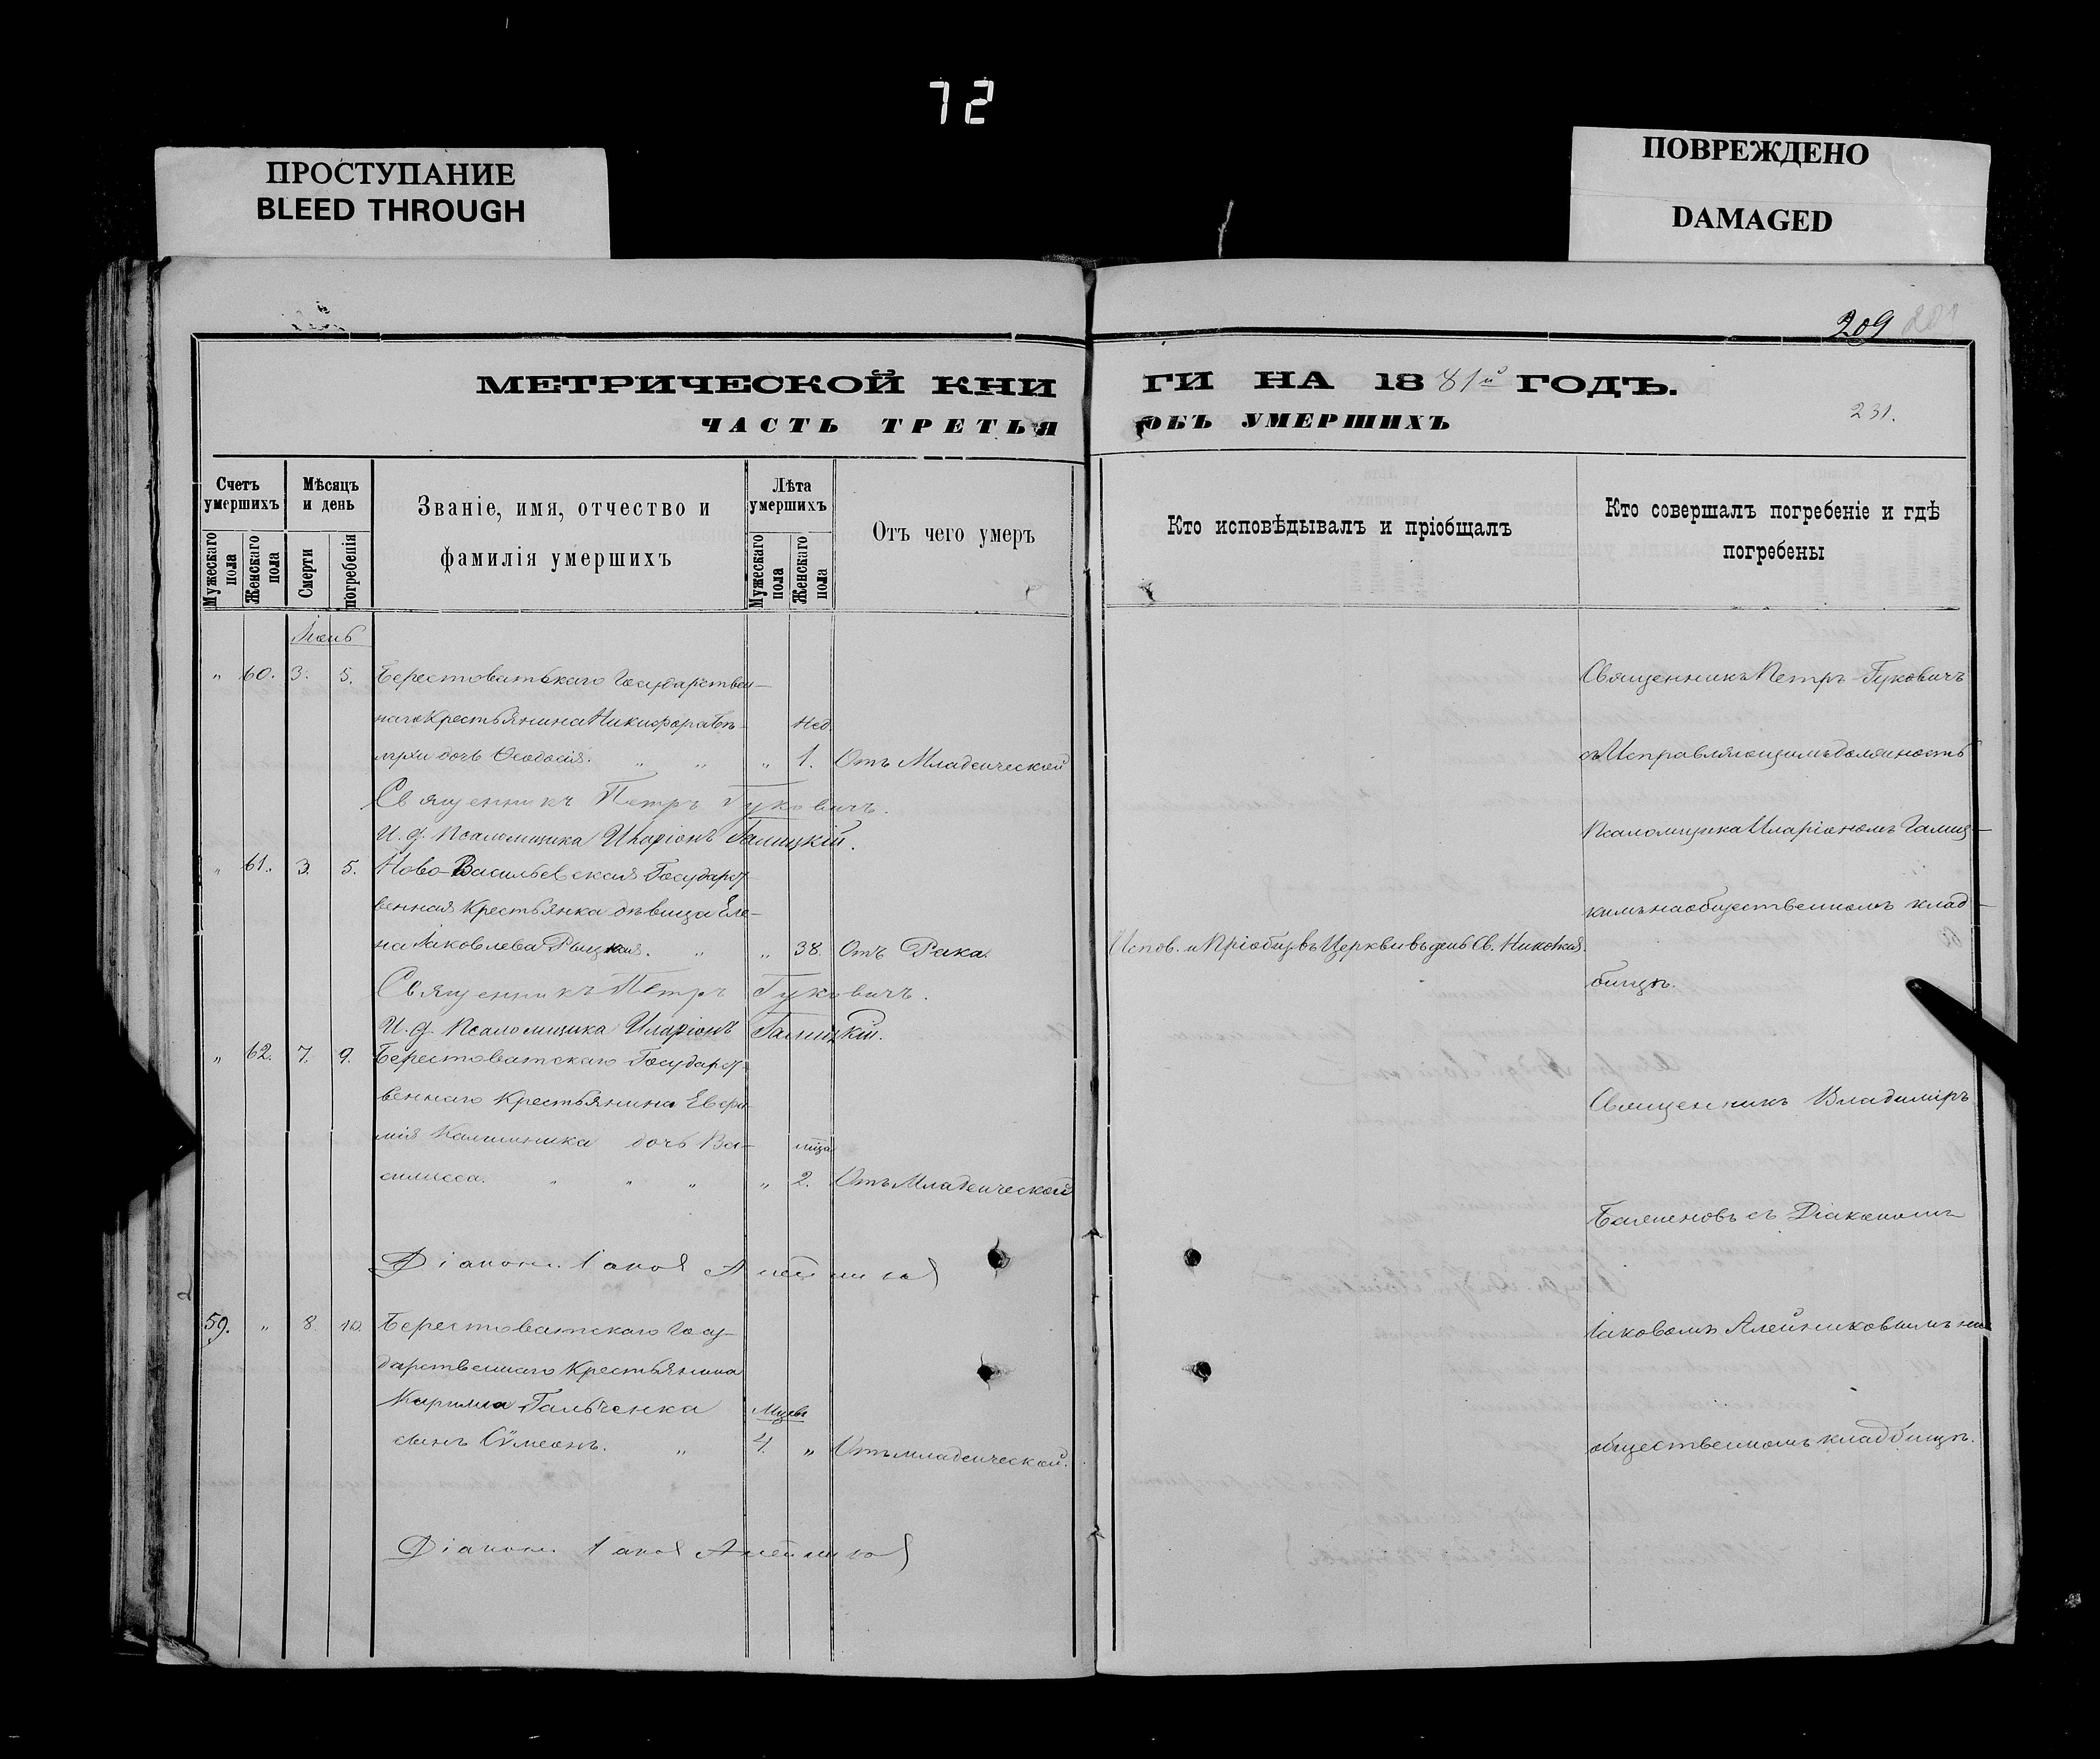 72
ПРОСТУПАНИЕ
BLEED THROUGH
ПОВРЕЖДЕНО
DAMAGED
209
МЕТРИЧЕСКОЙ КНИ ГИ НА 1881й ГОДЪ.
ЧАСТЬ ТРЕТЬЯ ОБЪ УМЕРШИХЪ
231.
Счетъ умершихъ
Мужескаго пола
Женскаго пола
Мѣсяцъ и день
Смерти
погребенія
Званіе, имя, отчество и
фамилія умершихъ
Лѣта умершихъ
Мужескаго пола
Женскаго пола
Отъ чего умеръ
Кто исповѣдывалъ и пріобщалъ
Кто совершалъ погребеніе и гдѣ
погребены
" 60. 3. 5. Берестоватскаго Государствен-
наго Крестьянина Никифора нед.
дочь Ѳеодосія. " " " 1. Отъ Младенческой
Священникъ Петръ Гуковичъ.
И. д. Псаломщика Иларіонъ Галицкій.
" 61. 3. 5. Ново-Васильевская Государст-
венная Крестьянка дѣвица Еле-
на Іаковлева " " 38. Отъ Рака. Испов. и Пріобщ. въ Церкви въ день Св. Николая.
Священникъ Петръ Гуковичъ.
И. д. Псаломщика Иларіонъ Галицкій.
" 62. 7. 9. Берестоватскаго Государст-
веннаго Крестьянина Евѳи-
мія Калинника дочь Ва-
силисса. " " " " 2. Отъ Младенческой
Діаконъ Іаковъ Алейниковъ
59. " 8. 10. Берестоватскаго Госу-
дарственнаго Крестьянина
Кирилла Гальченка
сынъ Сѵмеонъ. " 4. " Отъ младенческой.
Діаконъ Іаковъ Алейниковъ
Священникъ Петръ Гуковичъ
съ Исправляющимъ должность
Псаломщика Иларіономъ Галиц-
кимъ на общественномъ клад-
бищѣ.
Священникъ Владиміръ
Баженовъ съ Діакономъ
Іаковомъ Алейниковымъ на
общественномъ кладбищѣ.